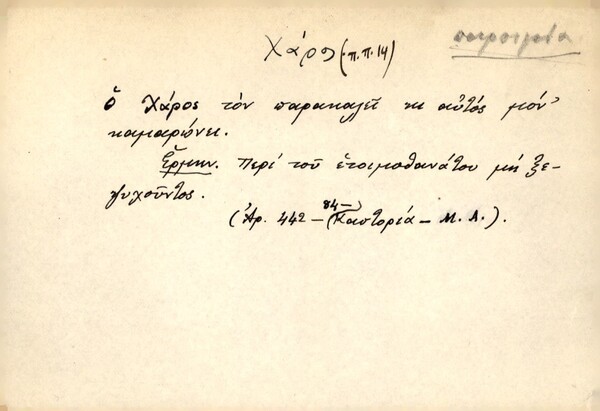 Χάρος (π.π. 14)
παροιμία
Ὁ Χάρος τὸν παρακαλεῖ κι αὐτός μον'
καμαρώνει.
Ἑρμην. Περί τοῦ ἑτοιμοθανάτου μή ξε-
ψυχοῦντος.
84-
(Ἀρ. 442 - Καστοριά - Μ. Α.).